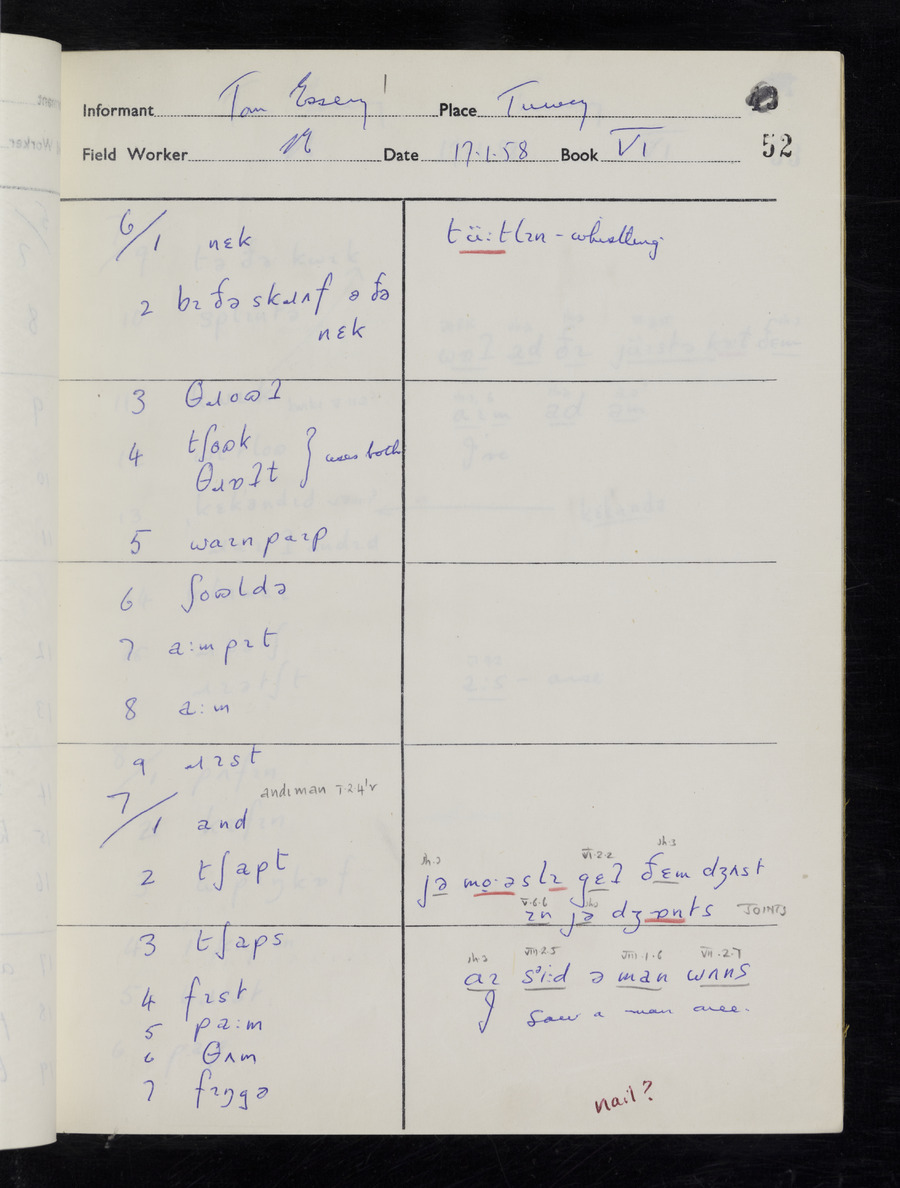 Informant Tom Essery Place
Field Worker Date 17.1.58 Book VI 52
6/1 nɛk
2 bɪ ðə skɹʌf ə ðə
nɛk
3 θɹoʊɫ
4 tʃoʊk
θɹɒɫt } uses both
5 waɪnpaɪp
6 ʃoʊldə
7 a:mpɪt
8 a:m
9 ɹɪst
7/1 and
2 tʃapt
3 tʃaps
4 fɪst
5 pa:m
6 θʌm
7 fɪŋgə
tü:tlɪn - whistling
jə mo·əslɪ gɛɫ ðɛm dʒʌst
ɪn jə dʒɒnts JOINTS
aɪ sᵊi:d ə man wʌns
I saw a man once.
nail?